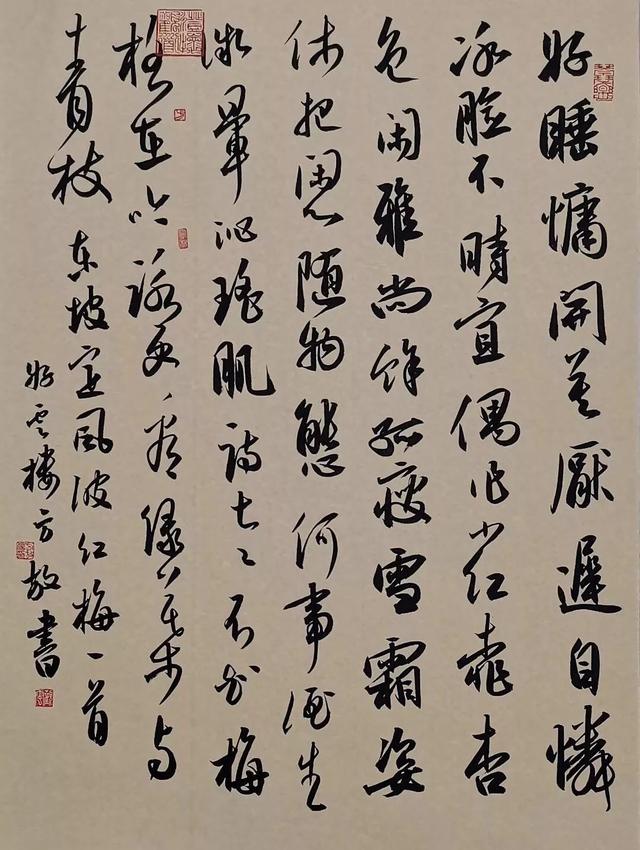 好睡慵開莫厭遲自憐
冰臉不時宜偶作小紅桃杏
色閑雅尚餘孤瘦雪霜姿
休把閑心随物態何事酒生
微暈沁瑤肌詩老不知梅
格在吟詠更看緑葉與
青枝 东坡定風波红梅一首
好雲樓方書